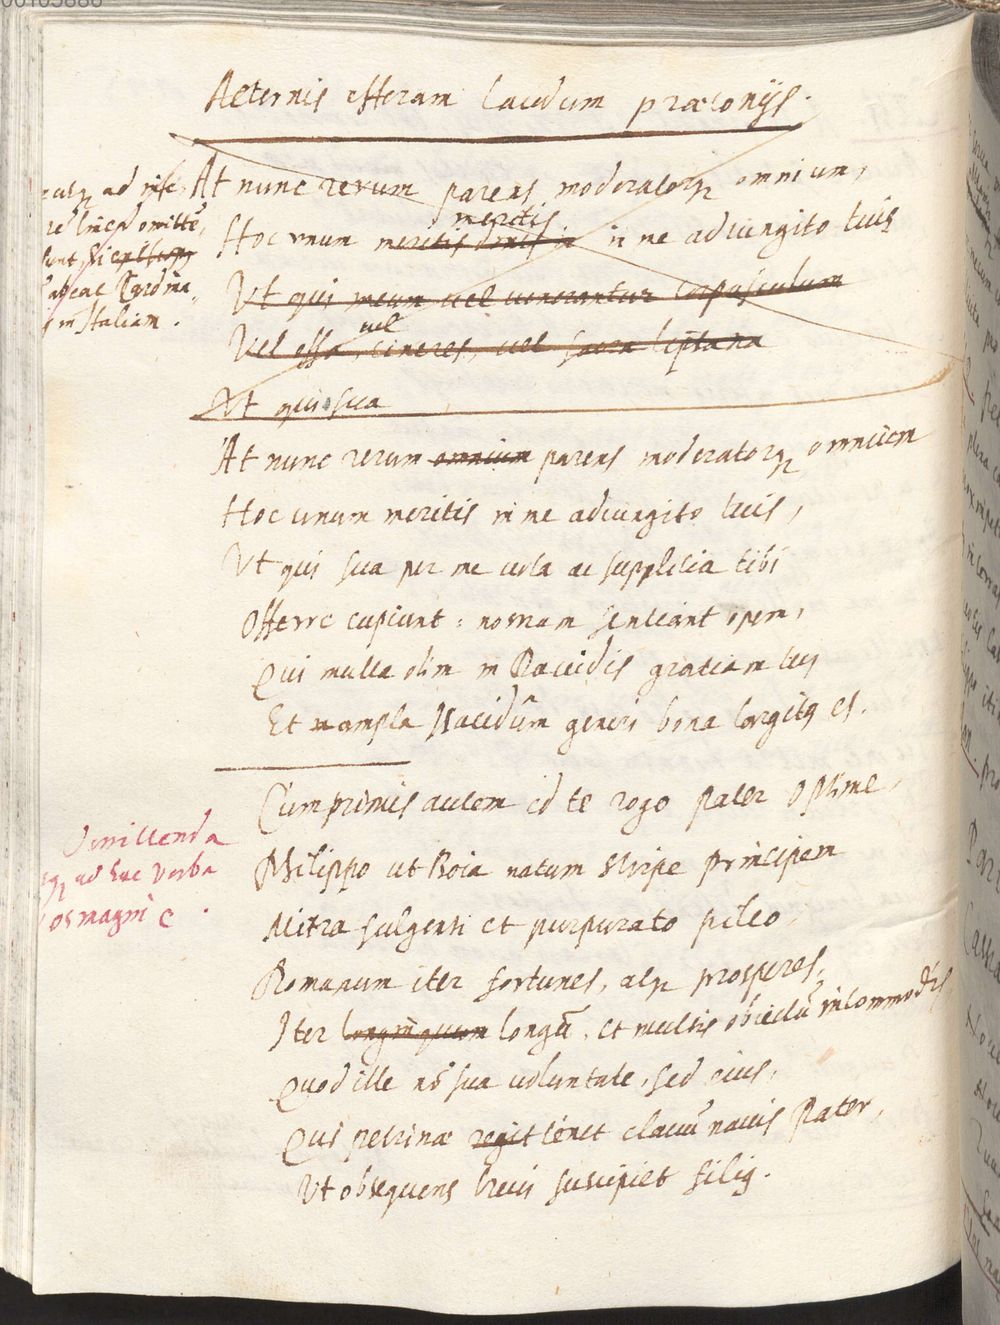 Aeternis efferam laudum praeconijs.
At nunc rerum parens moderatorq omnium,
meritis
Hoc unum meritis in me adiungito tuis
Ut qui meum vel venerantur corpusculum
vel
Vel ossa, cineres, vel sacra lipsana
Ut qui sua
At nunc rerum omnium parens moderatorq omnium
Hoc unum meritis in me adiungito tuis,
Ut qui sua per me vota ac supplicia tibi
Offerre cupiunt, nostram sentiant opem,
Qui multa olim in Davidis gratiam tui
Et ampla Isacidum generi bona largitq es.
Cumprimis autem id te rogo Pater optime,
Philippo ut Boia natum stirpe principem
Mitra fulgenti et purpurato pileo
Romanum iter fortunes, atq prosperes,
Iter longinquum longū, et multis obiectū incommodis,
Quod ille nō sua voluntate, sed eius,
Qui petrinae regit tenet clavū navis Pater,
Ut obsequens brevi suscipiet filiq.
ad
omittē,
in Italiam.
omittenda
ad haec verba
magni c.